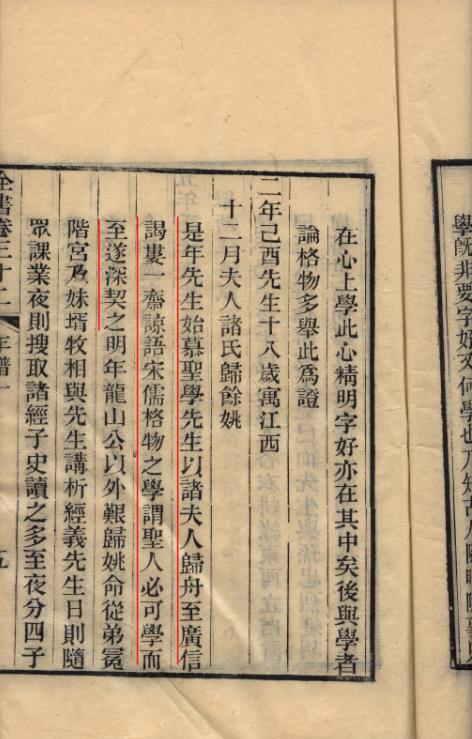 學旣非要字好又何學也乃知古人隨時隨事只
在心上學此心精明字好亦在其中矣後與學者
論格物多舉此爲證
二年己酉先生十八歲寓江西
十二月夫人諸氏歸餘姚
是年先生始慕聖學先生以諸夫人歸舟至廣信
謁婁一齋諒語宋儒格物之學謂聖人必可學而
至遂深契之明年龍山公以外艱歸姚命從弟冕
階宮及妹壻牧相與先生講析經義先生日則隨
眾課業夜則搜取諸經子史讀之多至夜分四子
全書卷三十二
年譜一
五